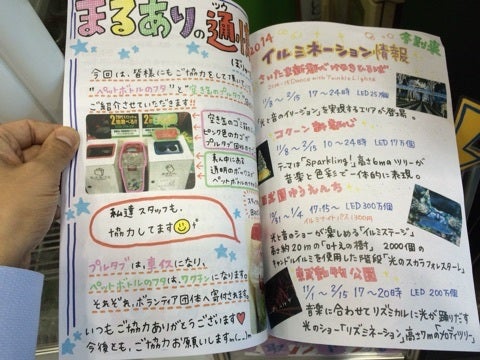 まるありの通
ツウ
今回は、皆様にもご協力して頂い
"ペットボトルのフタ"と"空き缶のプルタブ
ご紹介させていただきます!!
空き缶のゴミ箱の
ピンク色のカゴが
プルタブ回収
真ん中にある
透明のボックスが
ペットボトルの
私達スタッフも、
協力してます
プルタブは、車イスになり、
ペットボトルのフタは、ワクチンになります。
それぞれ、ボランティア団体へ寄付されます。
いつもご協力ありがとうございます♡
今後とも、ご協力お願いします。
2014
イルミネーション情報
さいたま新都心けやきひろば
2014〜15 Dance with Twinkle Lights
11/8〜2/15 17〜24時 LED25万個
「光と音のイリュージョン」を実現するエリアが登場。
コクーン新都心
11/8〜2/15 10〜24時 LED17万個
テーマは「Sparkling!」高さ6mツリーが
音楽と色彩で一体的に表現。
西武園ゆうえんち
10/31〜4/ 17:15〜 LED300万個
イルミナイトパス1300円
光と音のショーが楽しめる「イルミステージ」
高さ約20mの「口十ルの樹」 2000個の
キャンドルイルミを使用した階段「光のスカラフォレスターレ」
東武動物公園
11/1〜2/15 17〜20時 LED200万個
音楽に合わせてリズミカルに光が踊りだす
光のショー「リズミネーション」高さ7mの「メロディツリー」